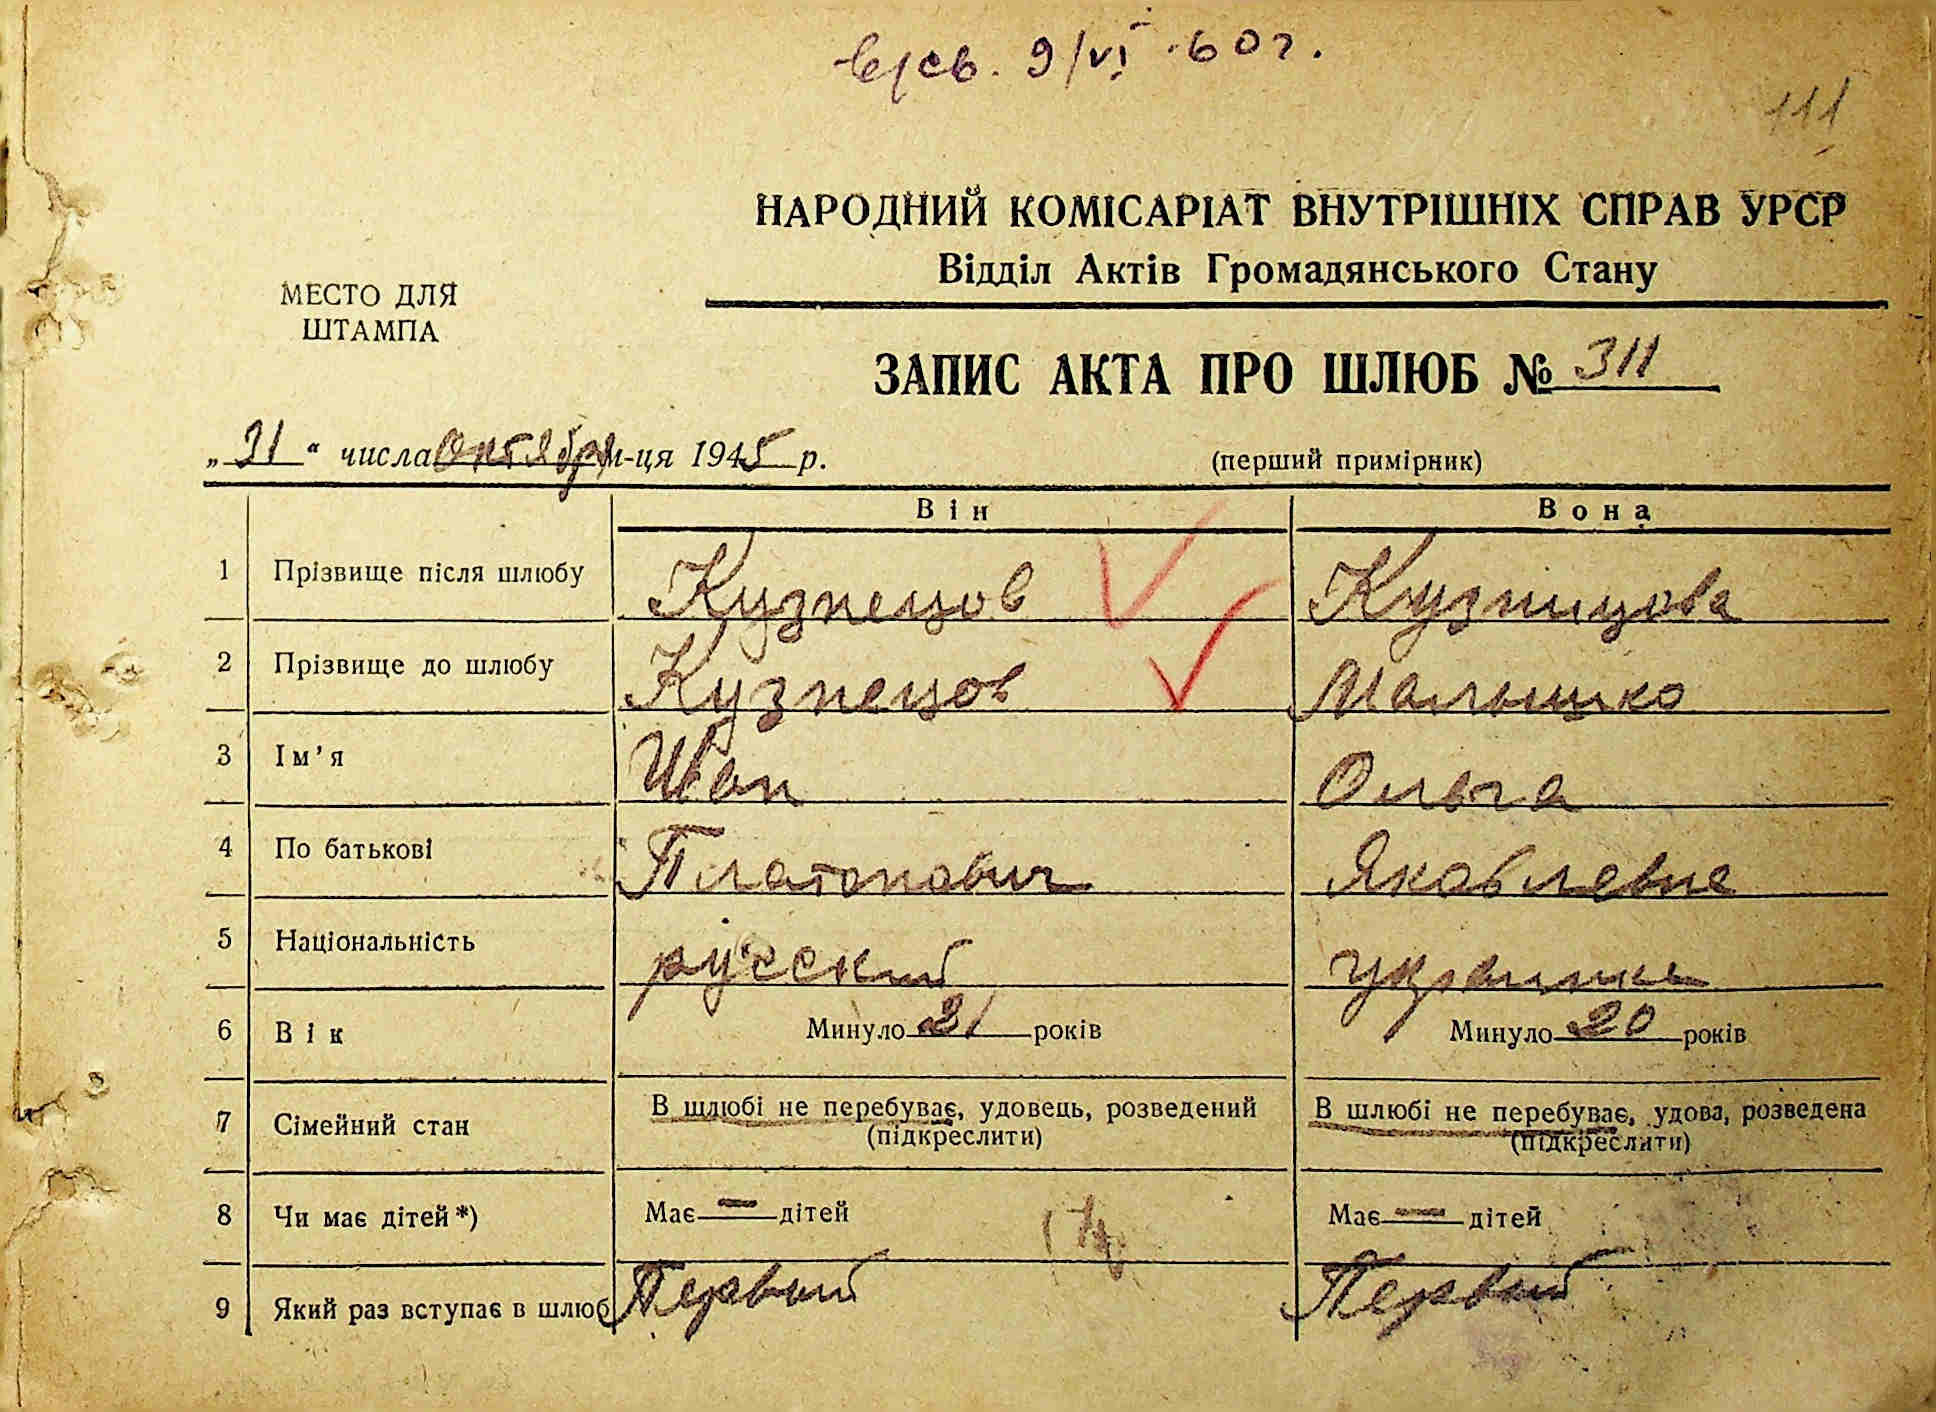 в/св. 9/VI 60г.
111
НАРОДНИЙ КОМІСАРІАТ ВНУТРІШНІХ СПРАВ УРСР
Відділ Актів Громадянського Стану
МЕСТО ДЛЯ
ШТАМПА
ЗАПИС АКТА ПРО ШЛЮБ № 311
„31“ числа Октября м-ця 1945 р. (перший примірник)
Він Вона
1 Прізвище після шлюбу Кузнецов Кузницова
2 Прізвище до шлюбу Кузнецов Малышко
3 Ім'я Иван Ольга
4 По батькові Платонович Яковлевна
5 Національність русский украинка
6 Вік Минуло 21 років Минуло 20 років
7 Сімейний стан В шлюбі не перебуває, удовець, розведений В шлюбі не перебуває, удова, розведена
(підкреслити) (підкреслити)
8 Чи має дітей*) Має — дітей Має — дітей
9 Який раз вступає в шлюб Первый Первый